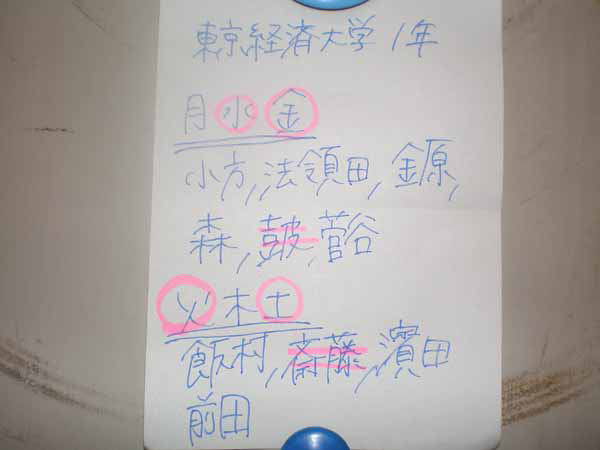 東京経済大学1年
月水金
小方,法領田,金原,
森,鼓,菅谷
火木土
飯村,斎藤,濱田
前田